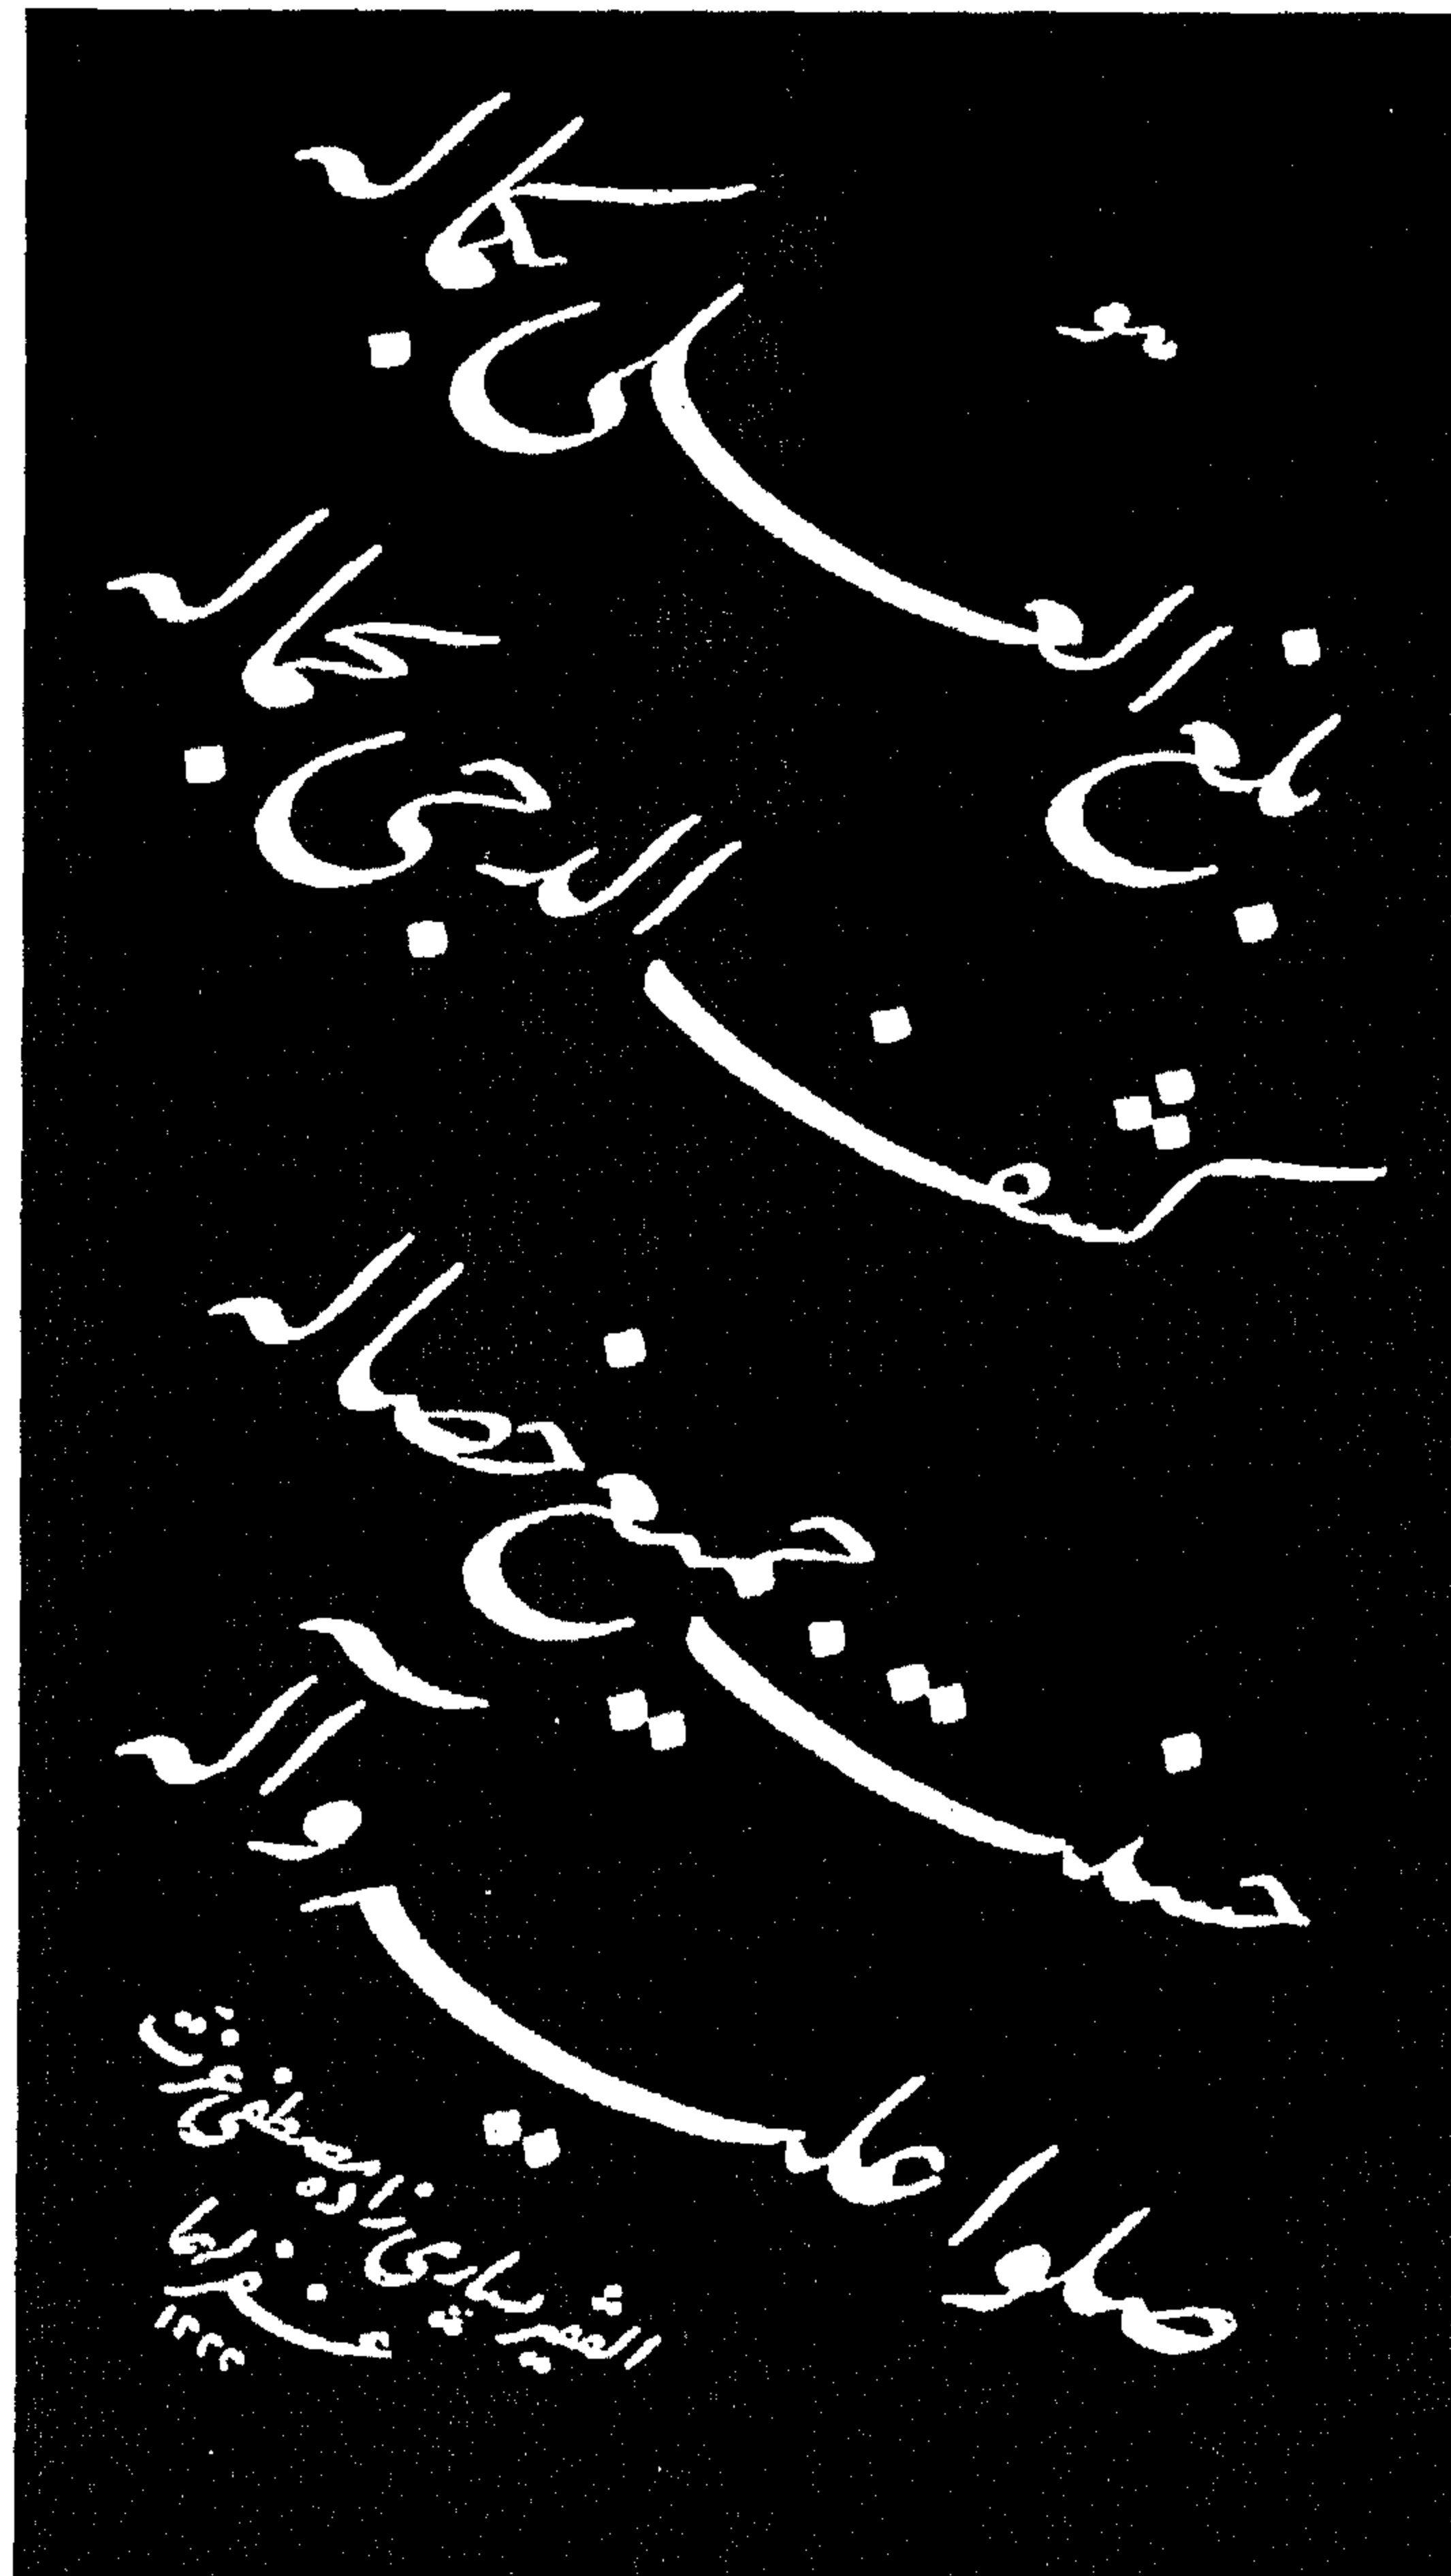 هو
بلغ العلى بكماله
كشف الدجى بجماله
حسنت جميع خصاله
صلوا عليه وآله
الفقير يساري زاده مصطفى عزت
غفر لهما